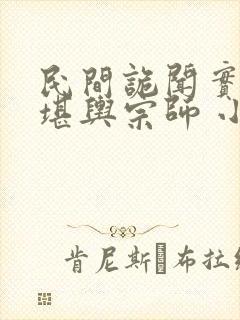 民間詭聞實
堪輿宗師 小
肯尼斯 布拉